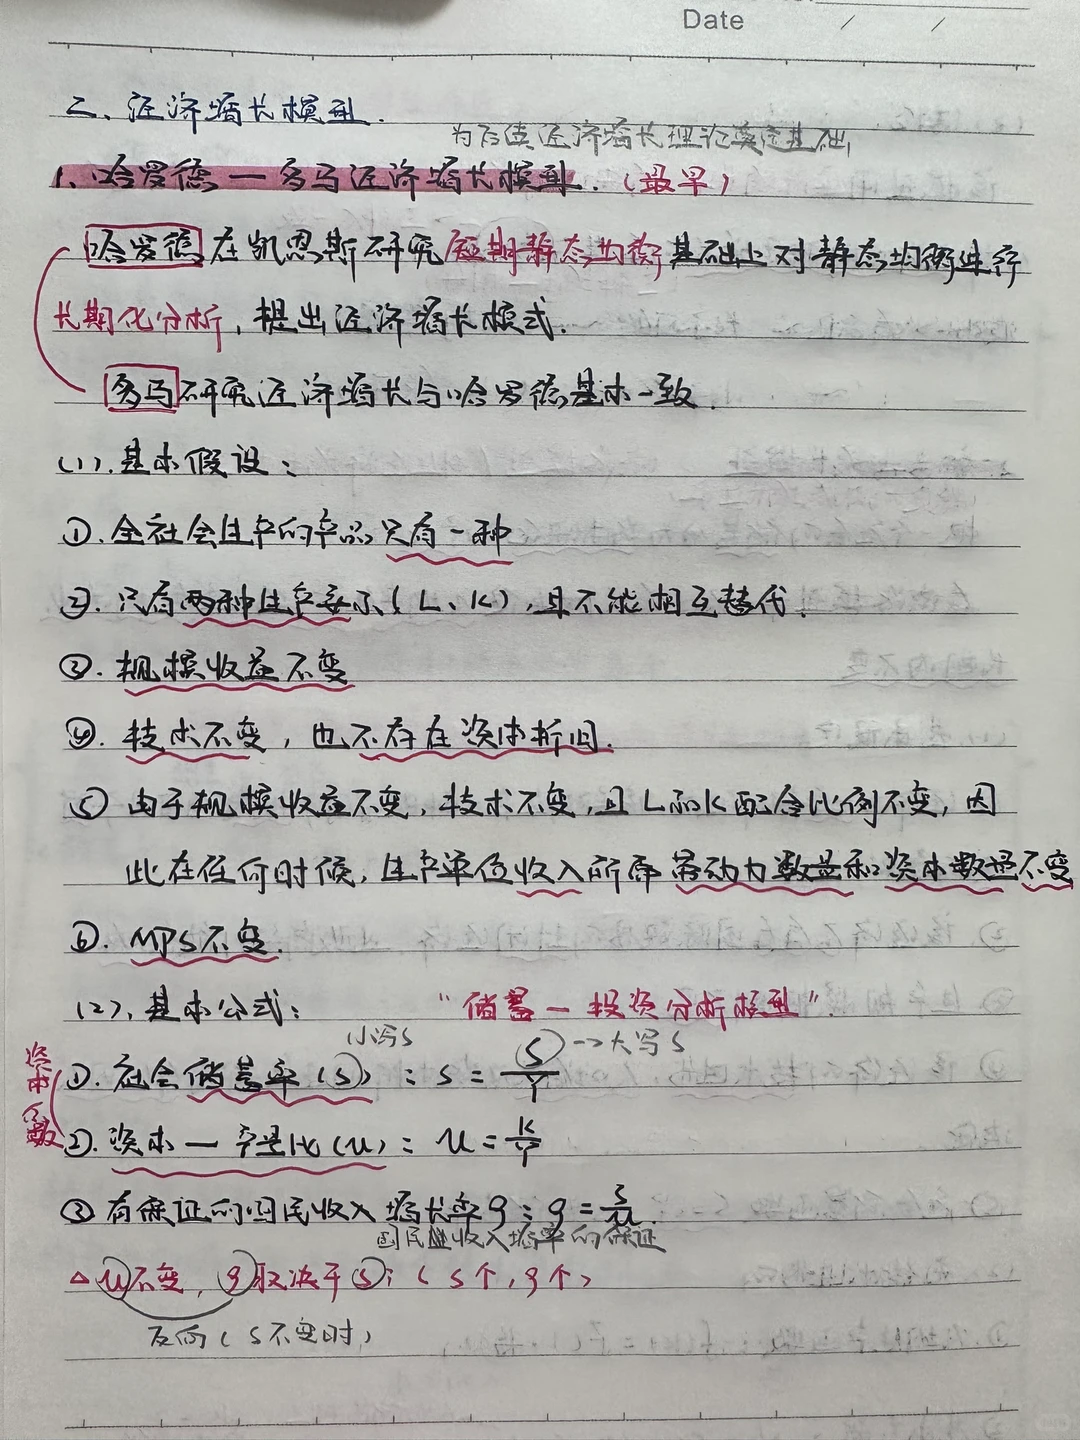 Date / /
二、经济增长模型.
为后续经济增长理论奠定基础
1、哈罗德一多马经济增长模型.（最早）
哈罗德在凯恩斯研究短期静态均衡基础上对静态均衡进行
长期化分析,提出经济增长模式.
多马研究经济增长与哈罗德基本一致.
(1).基本假设:
①.全社会生产的产品只有一种
②.只有两种生产要素(L、K),且不能相互替代.
③.规模收益不变
④.技术不变,也不存在资本折旧.
⑤由于规模收益不变,技术不变,且L和K配合比例不变,因
此在任何时候,生产单位收入所需劳动力数量和资本数量不变
⑥.MPS不变.
(2)、基本公式: “储蓄一投资分析模型”
小写s S->大写S
资本系数
①.社会储蓄率(s):s=S/Y
②.资本一产量比(u):u=K/Y
③有保证的国民收入增长率g:g=s/u.
国民收入增率的保证
△u不变,g取决于s;(s↑,g↑)
反向(s不变时)